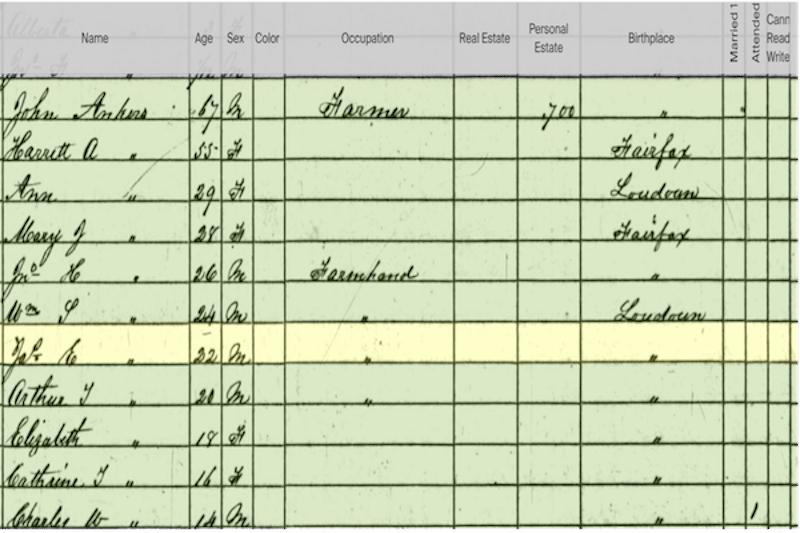 Name Age Sex Color Occupation Real Estate Personal Estate Birthplace Married Attended Cann Read Write
John Ankers 67 M Farmer 700 "
Harrett A " 55 F Fairfax
Ann " 29 F Loudoun
Mary J " 28 F Fairfax
Jno H " 26 M Farmhand "
Wm S " 24 M " Loudoun
Jas E " 22 M " "
Arthur T " 20 M " "
Elizabeth " 18 F "
Cathrine T " 16 F "
Charles W " 14 M " 1